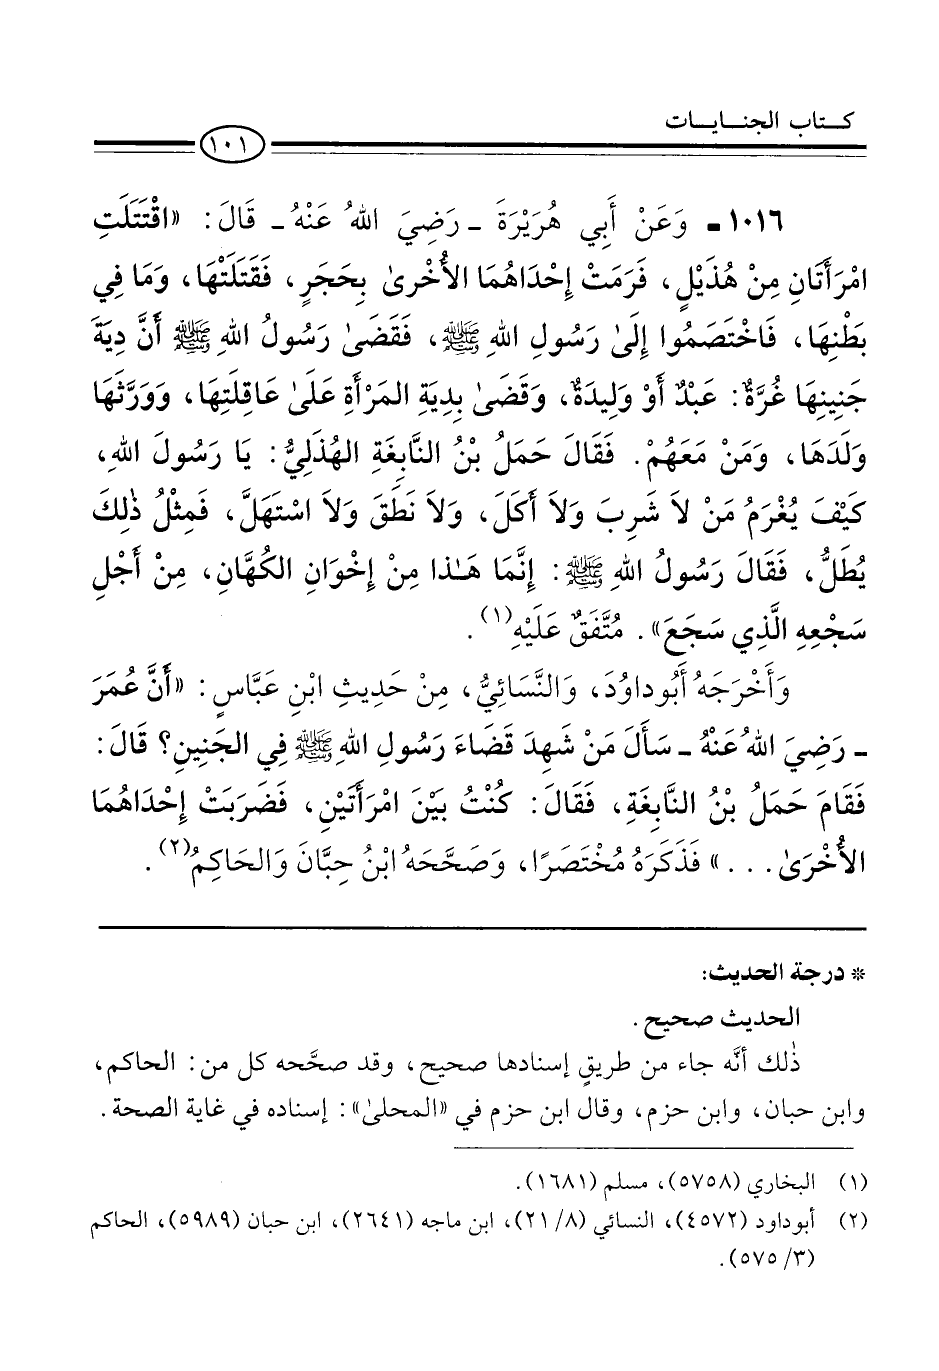 كتاب الجنايات
١٠١
١٠١٦ - وَعَنْ أَبِي هُرَيْرَةَ - رَضِيَ اللهُ عَنْهُ - قَالَ: «اقْتَتَلَتِ
امْرَأَتَانِ مِنْ هُذَيْلٍ، فَرَمَتْ إِحْدَاهُمَا الأُخْرىٰ بِحَجَرٍ، فَقَتَلَتْهَا، وَمَا فِي
بَطْنِهَا، فَاخْتَصَمُوا إِلَىٰ رَسُولِ اللهِ ﷺ، فَقَضَىٰ رَسُولُ اللهِ ﷺ أَنَّ دِيَةَ
جَنِينِهَا غُرَّةٌ: عَبْدٌ أَوْ وَلِيدَةٌ، وَقَضَىٰ بِدِيَةِ المَرْأَةِ عَلَىٰ عَاقِلَتِهَا، وَوَرَّثَهَا
وَلَدَهَا، وَمَنْ مَعَهُمْ. فَقَالَ حَمَلُ بْنُ النَّابِغَةِ الهُذَلِيُّ: يَا رَسُولَ اللهِ،
كَيْفَ يُغْرَمُ مَنْ لاَ شَرِبَ وَلاَ أَكَلَ، وَلاَ نَطَقَ وَلاَ اسْتَهَلَّ، فَمِثْلُ ذٰلِكَ
يُطَلُّ، فَقَالَ رَسُولُ اللهِ ﷺ: إِنَّمَا هَـٰذا مِنْ إِخْوَانِ الكُهَّانِ، مِنْ أَجْلِ
سَجْعِهِ الَّذِي سَجَعَ». مُتَّفَقٌ عَلَيْهِ(١).
وَأَخْرَجَهُ أَبُو دَاوُدَ، وَالنَّسَائِيُّ، مِنْ حَدِيثِ ابْنِ عَبَّاسٍ: «أَنَّ عُمَرَ
- رَضِيَ اللهُ عَنْهُ - سَأَلَ مَنْ شَهِدَ قَضَاءَ رَسُولِ اللهِ ﷺ فِي الجَنِينِ؟ قَالَ:
فَقَامَ حَمَلُ بْنُ النَّابِغَةِ، فَقَالَ: كُنْتُ بَيْنَ امْرَأَتَيْنِ، فَضَرَبَتْ إِحْدَاهُمَا
الأُخْرَىٰ...» فَذَكَرَهُ مُخْتَصَرًا، وَصَحَّحَهُ ابْنُ حِبَّانَ وَالحَاكِمُ(٢).
* درجة الحديث:
الحديث صحيح.
ذٰلك أنَّه جاء من طريقٍ إسنادها صحيح، وقد صحَّحه كل من: الحاكم،
وابن حبان، وابن حزم، وقال ابن حزم في «المحلىٰ»: إسناده في غاية الصحة.
(١) البخاري (٥٧٥٨)، مسلم (١٦٨١).
(٢) أبوداود (٤٥٧٢)، النسائي (٨/ ٢١)، ابن ماجه (٢٦٤١)، ابن حبان (٥٩٨٩)، الحاكم
(٣/ ٥٧٥).